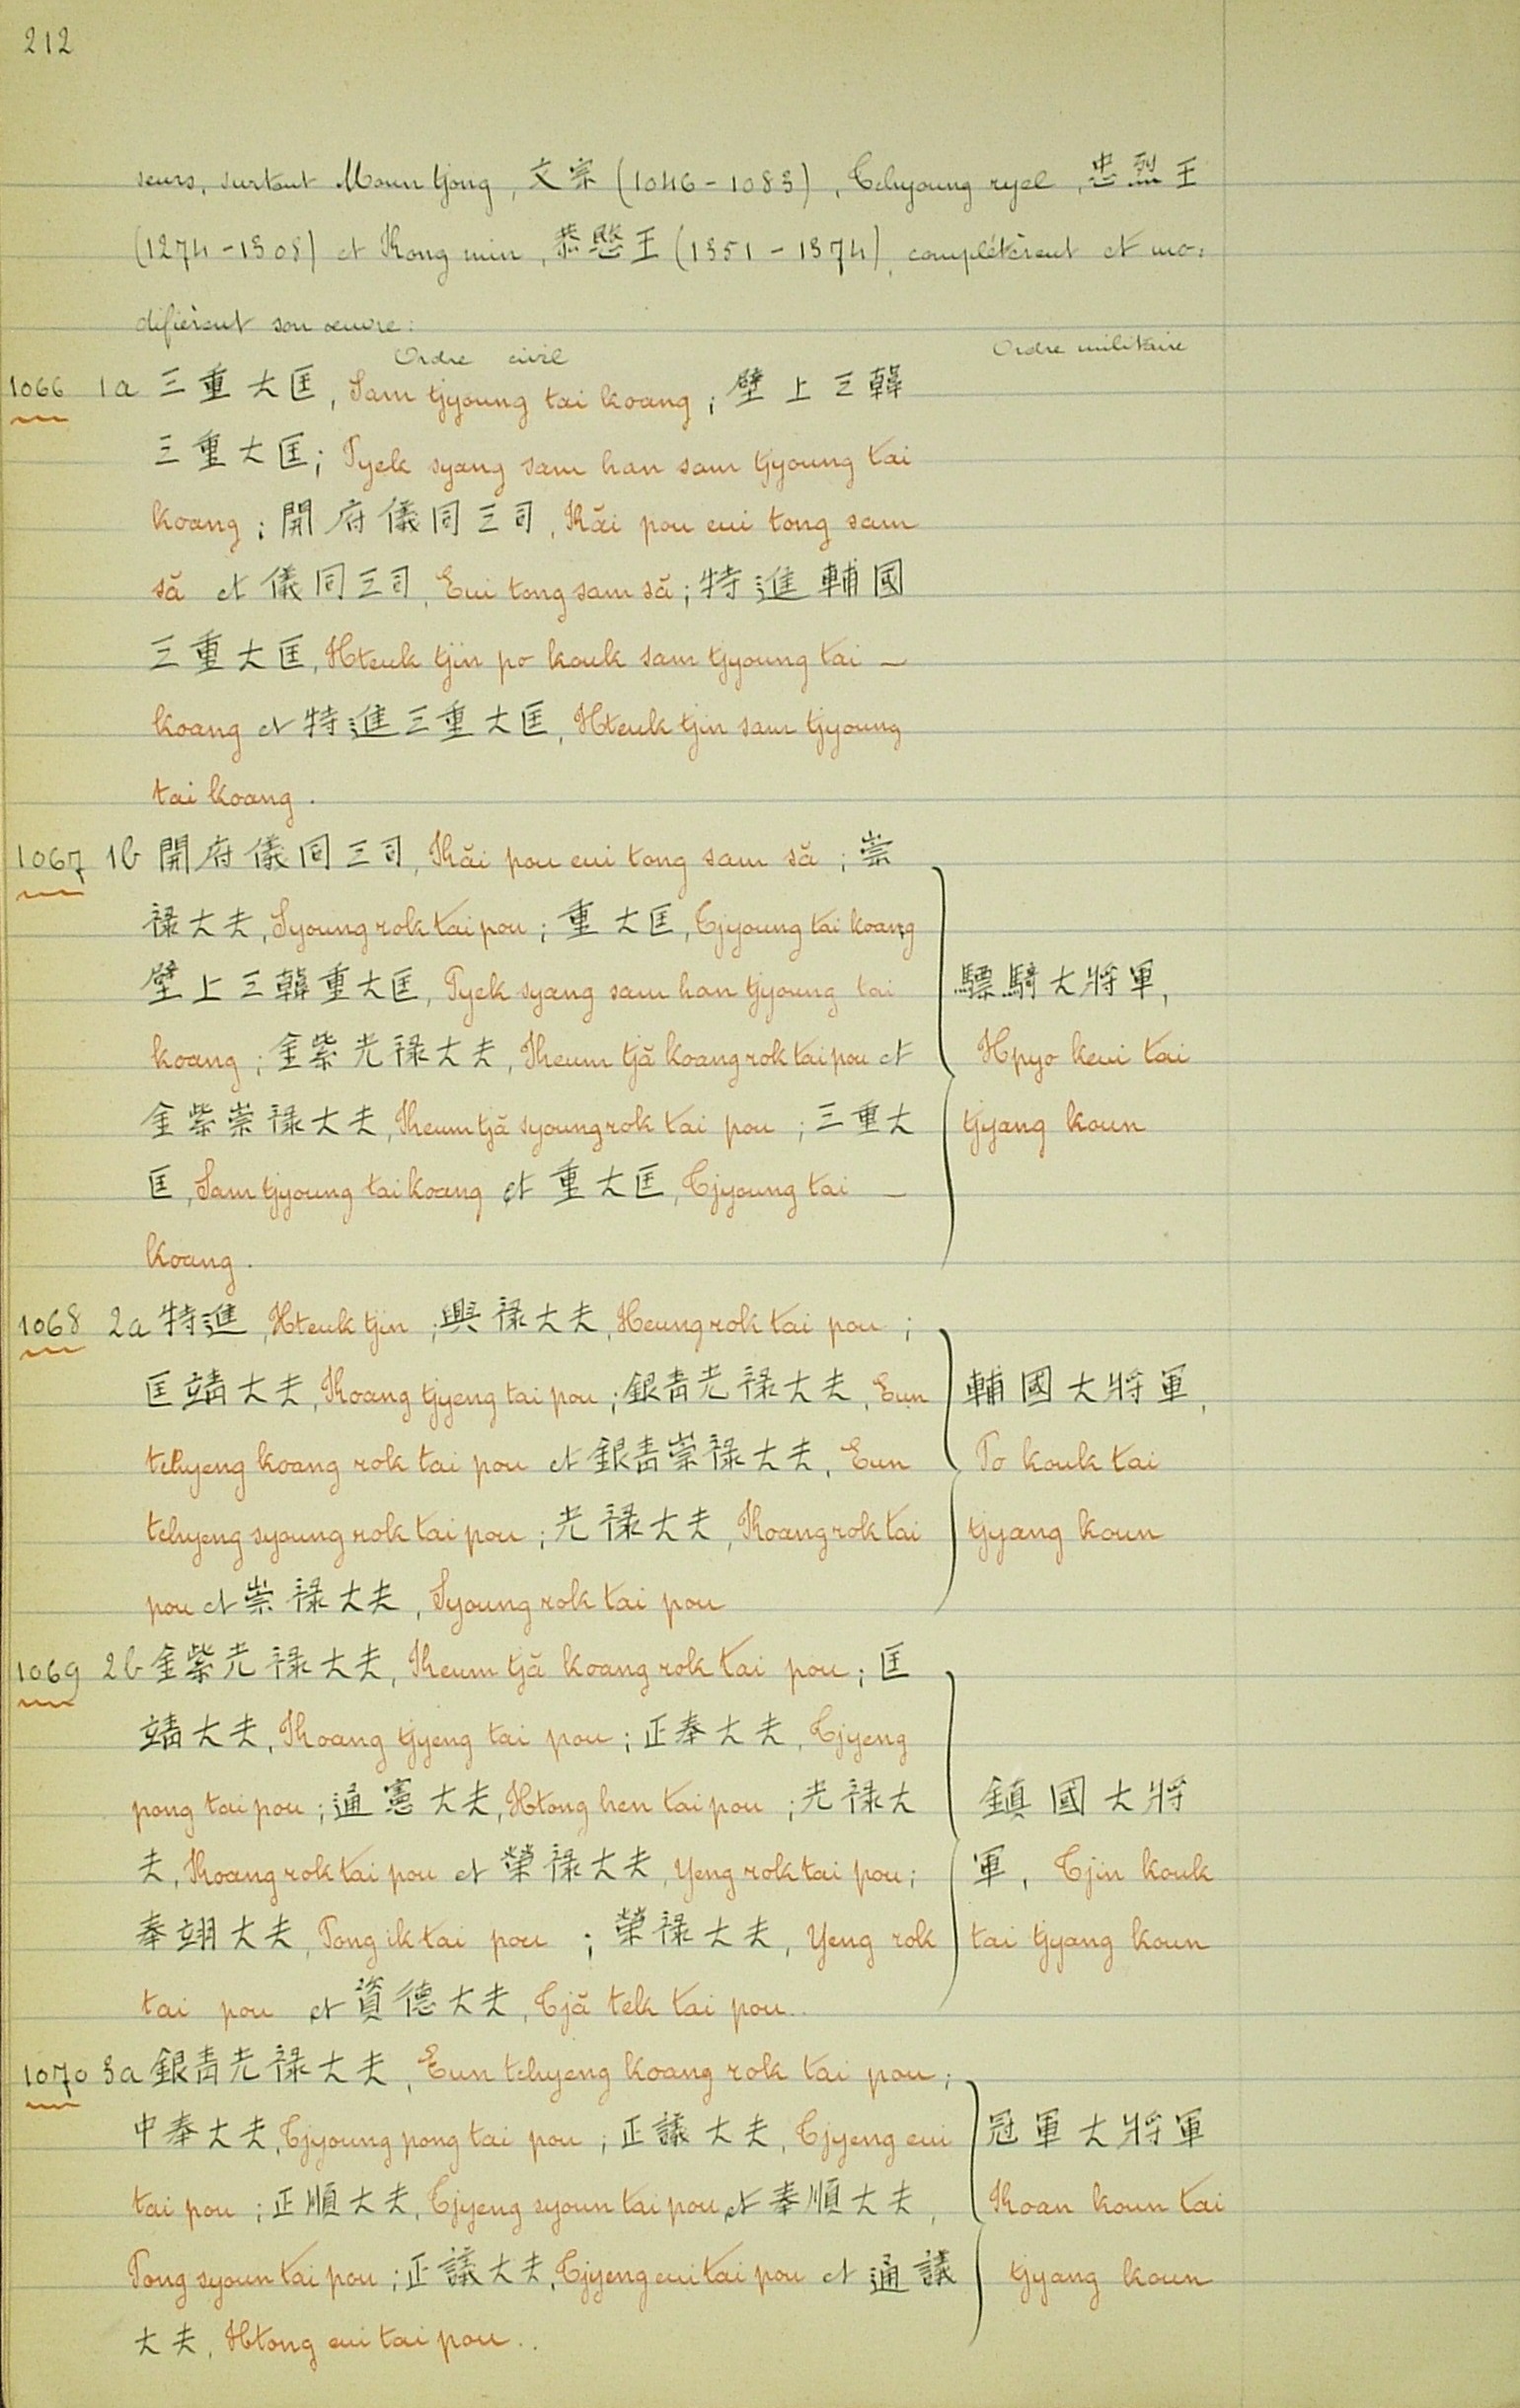 212
seurs, surtout Moun tjong, 文宗 (1046-1083), Tchyoung ryel, 忠烈王
(1274-1308) et Kong min, 恭愍王 (1351-1374), complétèrent et mo-
difièrent son œuvre:
Ordre civil Ordre militaire
1066 1a 三重大匡, Sam tjyoung tai koang; 壁上三韓
三重大匡; Pyek syang sam han sam tjyoung tai
koang; 開府儀同三司, Kăi pou eui tong sam
să et 儀同三司, Eui tong sam să; 特進輔國
三重大匡, Hteuk tjin po kouk sam tjyoung tai -
koang et 特進三重大匡, Hteuk tjin sam tjyoung
tai koang.
1067 1b 開府儀同三司, Kăi pou eui tong sam să; 崇
禄大夫, Syoung rok tai pou; 重大匡, Tjyoung tai koang
壁上三韓重大匡, Pyek syang sam han tjyoung tai
koang; 金紫光禄大夫, Keum tjă koang rok tai pou et
金紫崇禄大夫, Keum tjă syoung rok tai pou; 三重大
匡, Sam tjyoung tai koang et 重大匡, Tjyoung tai -
koang.
驃騎大將軍,
Hpyo keui tai
tjyang koun
1068 2a 特進, Hteuk tjin; 興禄大夫, Heung rok tai pou;
匡靖大夫, Koang tjyeng tai pou; 銀青光禄大夫, Eun
tchyeng koang rok tai pou et 銀青崇禄大夫, Eun
tchyeng syoung rok tai pou; 光禄大夫, Koang rok tai
pou et 崇禄大夫, Syoung rok tai pou
輔國大將軍,
Po kouk tai
tjyang koun
1069 2b 金紫光禄大夫, Keum tjă koang rok tai pou; 匡
靖大夫, Koang tjyeng tai pou; 正奉大夫, Tjyeng
pong tai pou; 通憲大夫, Htong hen tai pou; 光禄大
夫, Koang rok tai pou et 榮禄大夫, Yeng rok tai pou;
奉翊大夫, Pong ik tai pou; 榮禄大夫, Yeng rok
tai pou et 資德大夫, Tjă tek tai pou..
鎮國大將
軍, Tjin kouk
tai tjyang koun
1070 3a 銀青光禄大夫, Eun tchyeng koang rok tai pou;
中奉大夫, Tjyoung pong tai pou; 正議大夫, Tjyeng eui
tai pou; 正順大夫, Tjyeng syoun tai pou et 奉順大夫,
Pong syoun tai pou; 正議大夫, Tjyeng eui tai pou et 通議
大夫, Htong eui tai pou..
冠軍大將軍
Koan koun tai
tjyang koun